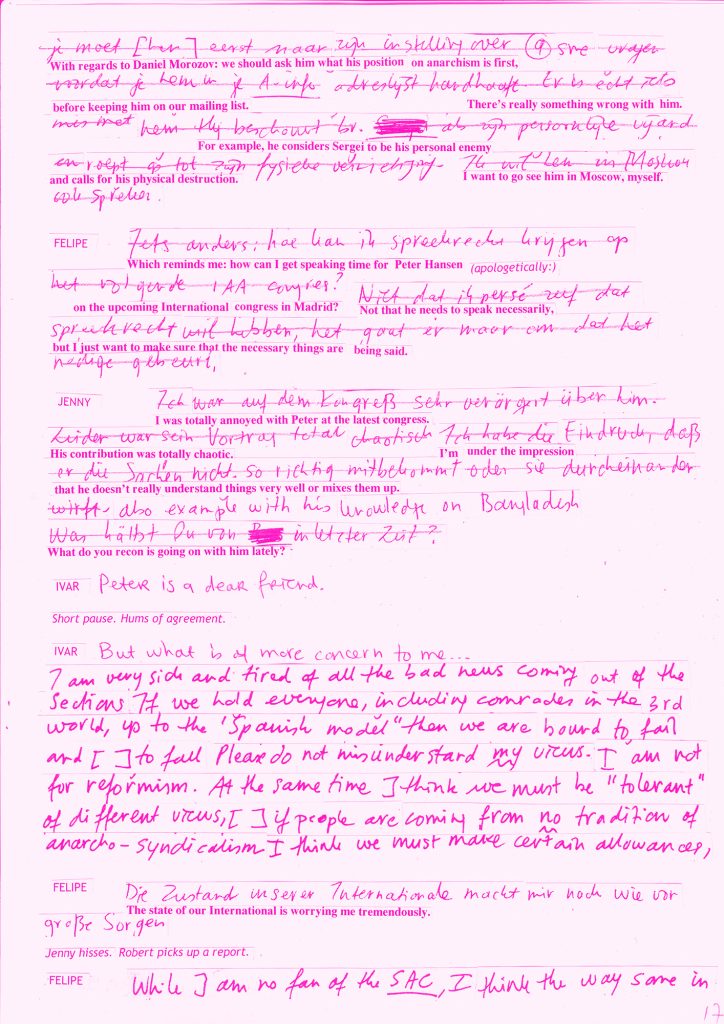 je moet [hem] eerst naar zijn instelling over (a) sme vragen
With regards to Daniel Morozov: we should ask him what his position on anarchism is first,
voordat je hem in je A-info adreslijst handhaaft. Er is écht iets
before keeping him on our mailing list. There's really something wrong with him.
mis met hem. Hij beschouwt bv. als zijn persoonlijke vijand
For example, he considers Sergei to be his personal enemy
en roept op tot zijn fysieke vernietiging. Ik wil hen in Moscow
and calls for his physical destruction. I want to go see him in Moscow, myself.
ook spreken.
FELIPE Iets anders: hoe kan ik spreekrecht krijgen op
Which reminds me: how can I get speaking time for Peter Hansen (apologetically:)
het volgende IAA congres? Niet dat ik persé zelf dat
on the upcoming International congress in Madrid? Not that he needs to speak necessarily,
spreekrecht wil hebben, het gaat er maar om dat het
but I just want to make sure that the necessary things are being said.
nodige gebeurt,
JENNY Ich war auf dem Kongreß sehr verärgert über him.
I was totally annoyed with Peter at the latest congress.
Leider war sein Vortrag total chaotisch Ich habe die Eindruck, daß
His contribution was totally chaotic. I'm under the impression
er die Sachen nicht so richtig mitbekommt oder sie durcheinander
that he doesn't really understand things very well or mixes them up.
wirft. also example with his knowledge on Bangladesh
Was hältst Du von in letzter Zeit?
What do you recon is going on with him lately?
IVAR Peter is a dear friend.
Short pause. Hums of agreement.
IVAR But what is of more concern to me...
I am very sick and tired of all the bad news coming out of the
Sections If we hold everyone, including comrades in the 3rd
world, up to the 'Spanish model" then we are bound to fail
and [ ] to fall Please do not misunderstand my views. I am not
for reformism. At the same time I think we must be "tolerant"
of different views, [ ] if people are coming from no tradition of
anarcho-syndicalism I think we must make certain allowances,
FELIPE Die Zustand unserer Internationale macht mir noch wie vor
The state of our International is worrying me tremendously.
große Sorgen
Jenny hisses. Robert picks up a report.
FELIPE While I am no fan of the SAC, I think the way some in
17